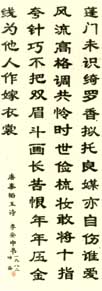 蓬门未识绮罗香拟托良媒亦自伤谁爱
风流高格调共怜时世俭梳妆敢将十指
夸针巧不把双眉斗画长苦恨年年压金
线为他人作嫁衣裳
唐秦韬玉诗